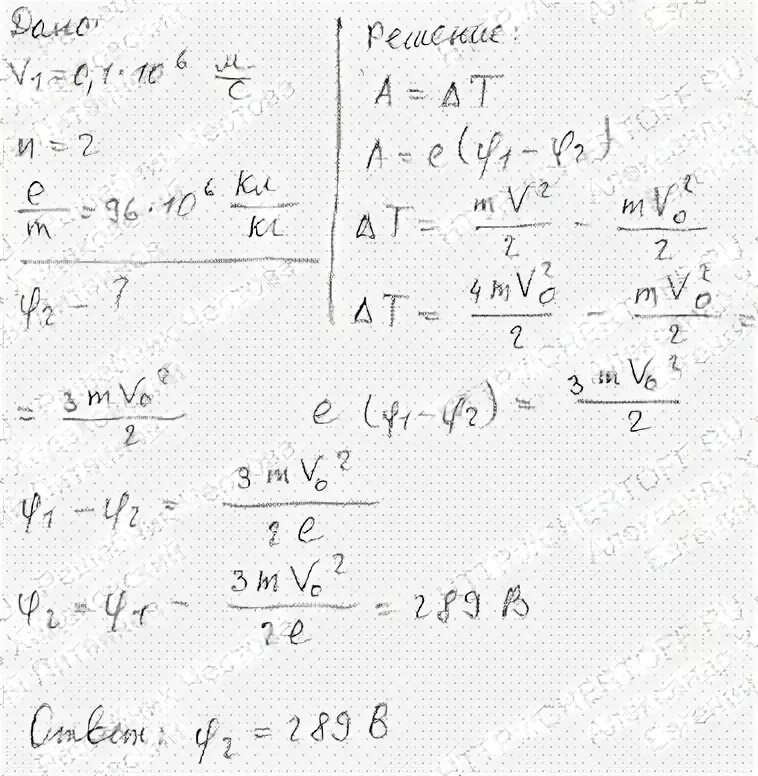 Дано:
V₁ = 0,1·10⁶ м/с
n = 2
e/m = 96·10⁶ Кл/кг
φ₂ - ?
Решение:
A = ΔT
A = e(φ₁ - φ₂)
ΔT = mV²/2 - mV₀²/2
ΔT = 4mV₀²/2 - mV₀²/2 =
= 3mV₀²/2 e(φ₁-φ₂) = 3mV₀²/2
φ₁ - φ₂ = 3mV₀²/2e
φ₂ = φ₁ - 3mV₀²/2e = 289 В
Ответ: φ₂ = 289 В